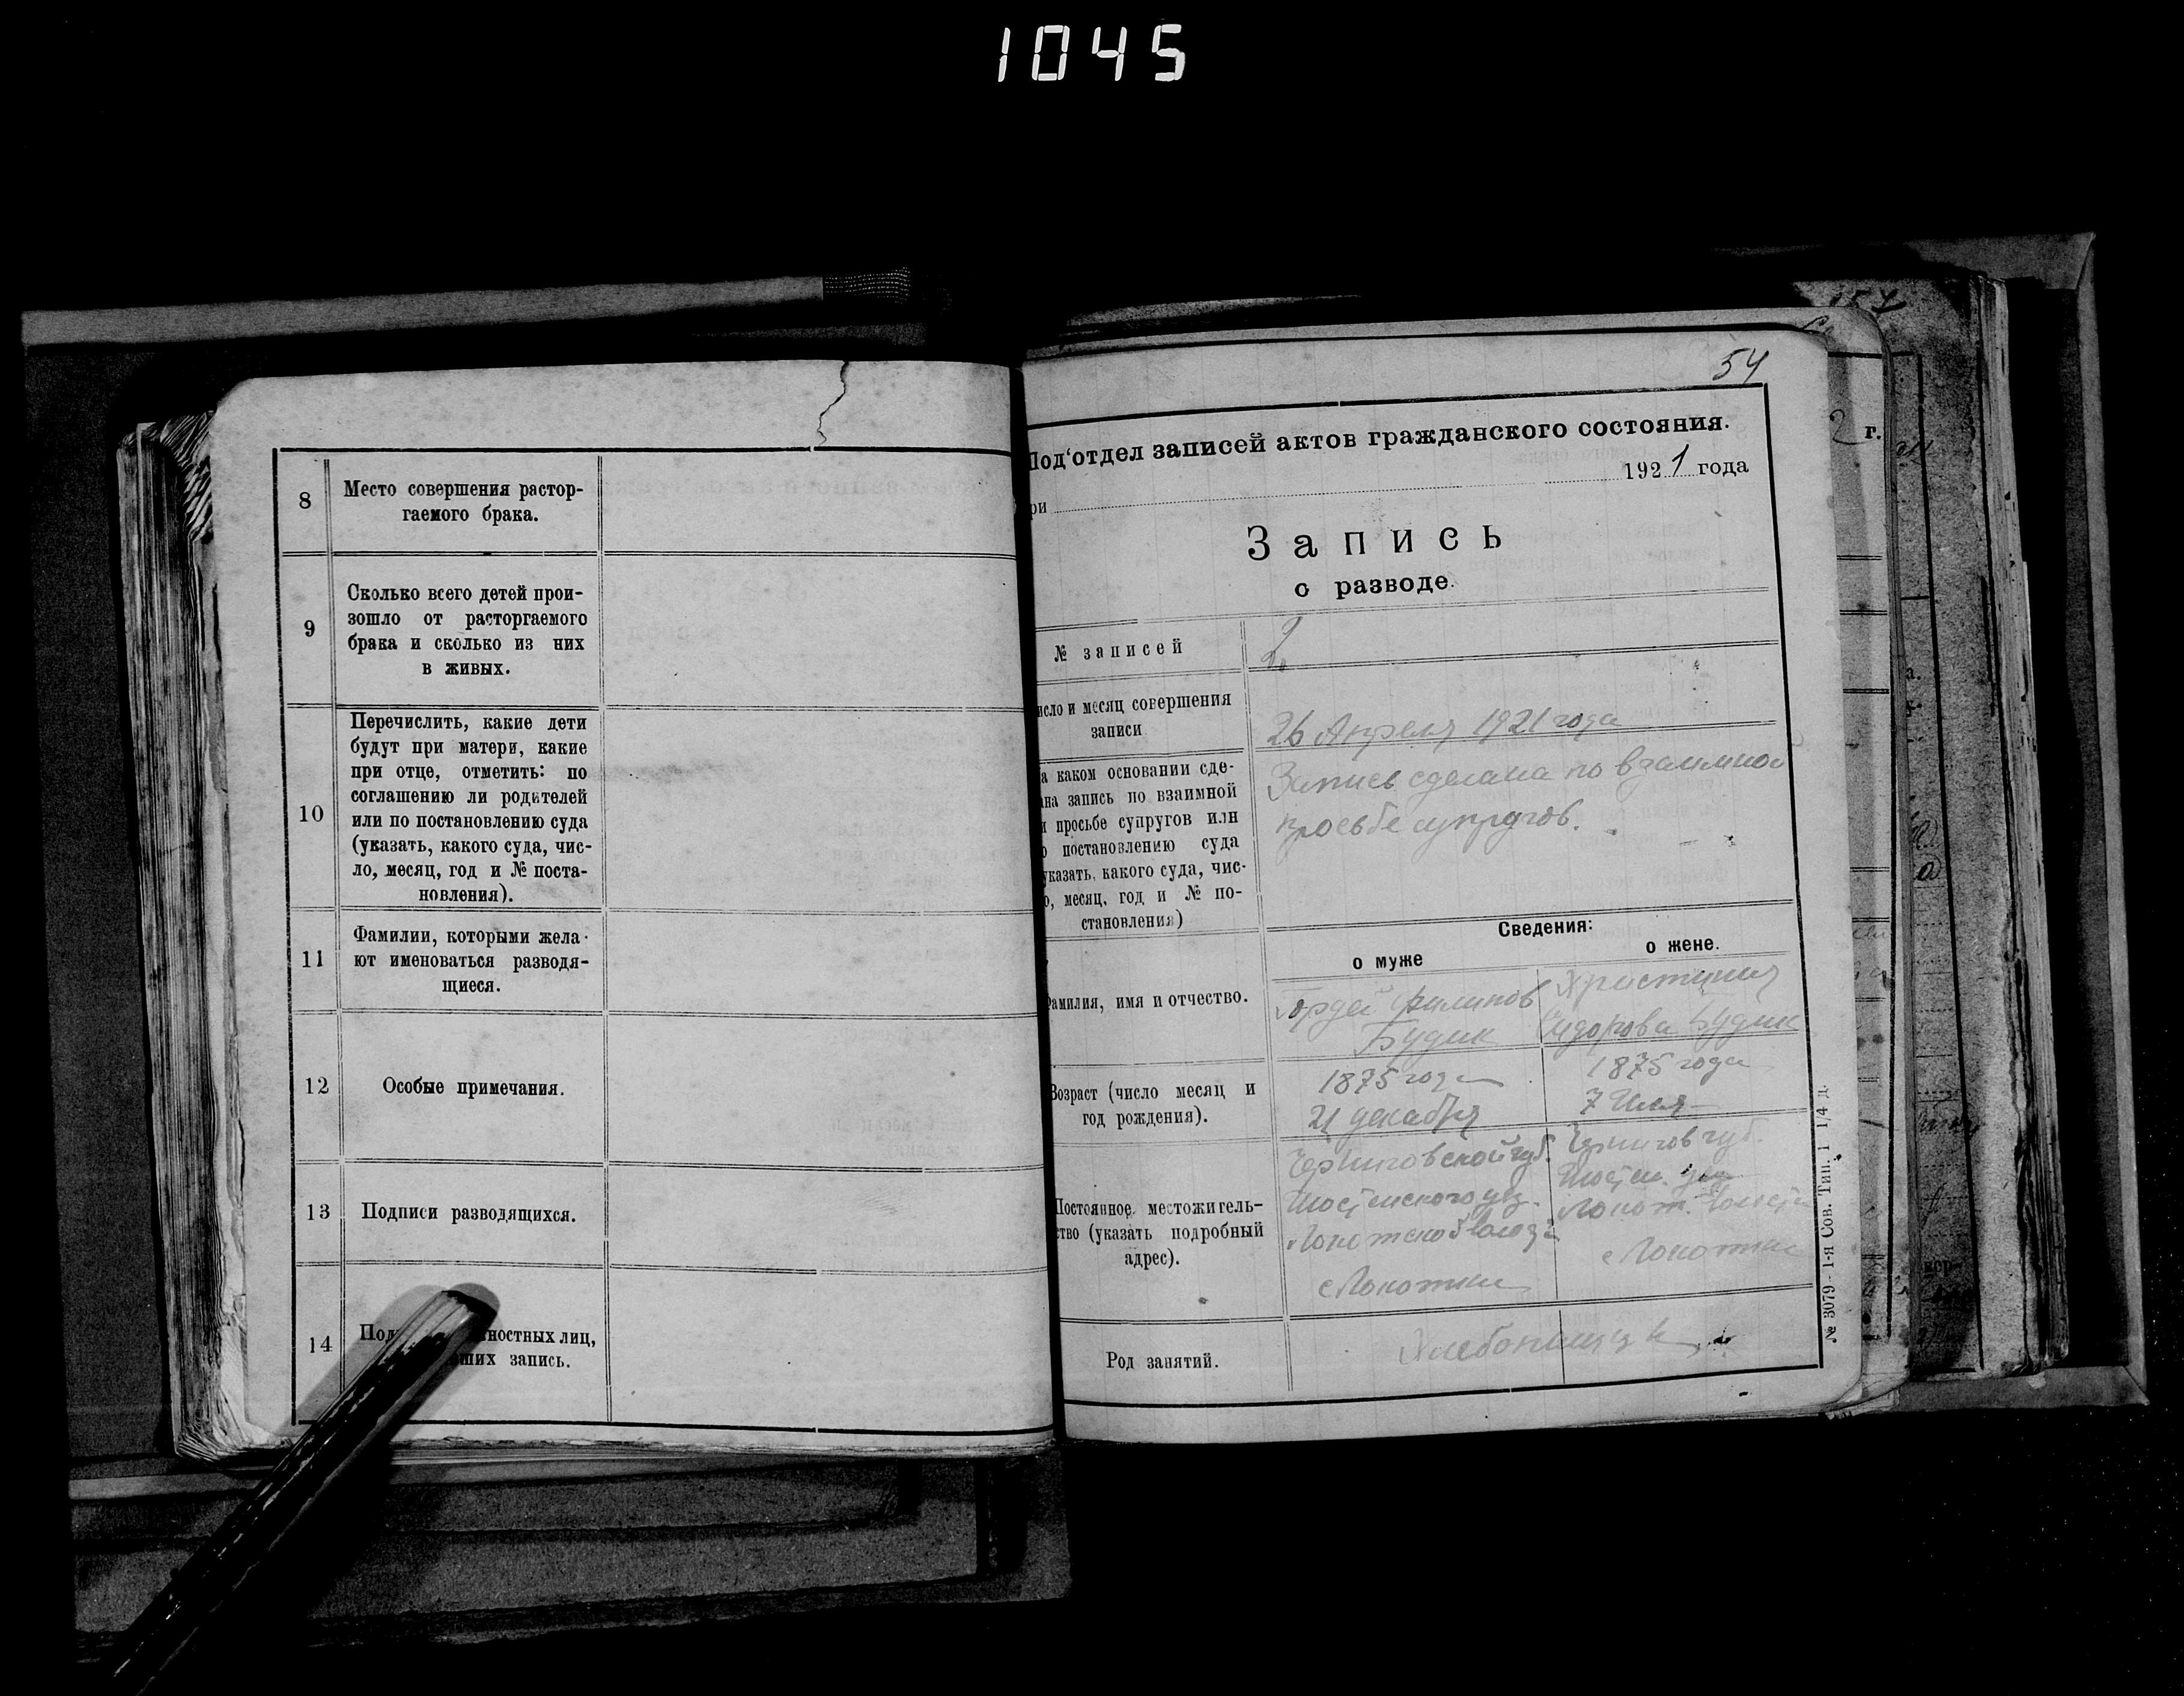 1045
8
Место совершения растор-
гаемого брака.
9
Сколько всего детей прои-
зошло от расторгаемого
брака и сколько из них
в живых.
10
Перечислить, какие дети
будут при матери, какие
при отце, отметить: по
соглашению ли родителей
или по постановлению суда
(указать, какого суда, чис-
ло, месяц, год и № поста-
новления).
11
Фамилии, которыми жела-
ют именоваться разводя-
щиеся.
12
Особые примечания.
13
Подписи разводящихся.
14
ностных лиц,
запись.
54
Под'отдел записей актов гражданского состояния.
ри 1921 года
Запись
о разводе.
№ записей
2
исло и месяц совершения
записи
26 Апреля 1921 года
а каком основании сде-
ана запись по взаимной
и просьбе супругов или
о постановлению суда
указать, какого суда, чис-
о, месяц, год и № по-
становления)
Запись сделана по взаимной
просьбе супругов.
Сведения:
о муже
о жене.
амилия, имя и отчество.
Гордей Филипов
Будик
Христиния
Сидорова Будик
Возраст (число месяц и
год рождения).
1875 года
21 декабря
1875 года
7
Постоянное местожитель-
ство (указать подробный
адрес).
Черниговской губ.
Шостенского уез.
Локотской
с Локотки
Чернигов губ.
Шостен. уез.
Локот.
с Локотки
Род занятий.
Хлебопашцы
№ 3079 - 1-я Сов. Тип. 1 14 д.
г.